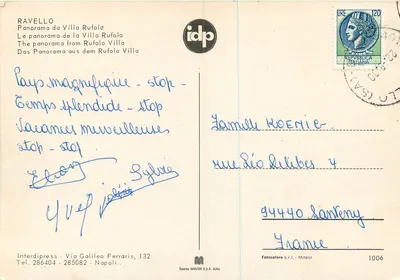 RAVELLO
Panorama da Villa Rufolo
Le panorama de la Villa Rufolo
The panorama from Rufolo Villa
Das Panorama aus dem Rufolo Villa
idp
LIRE 120
Pays magnifique - stop -
Temps splendide - stop
Vacances merveilleuses
stop - stop
Sylvie
Yves
Famille KOENIG
rue Léo Delibes 4
94440 Santeny
France
Interdipress - Via Galileo Ferraris, 132
Tel. 286404 - 285082 - Napoli
Fotoselex s.r.l. - Milano
1006